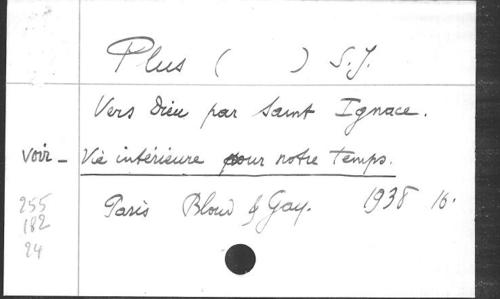 Plus ( ) S.J.
Vers Dieu par Saint Ignace.
voir - Vie intérieure pour notre Temps.
255 Paris Bloud & Gay. 1938 16.
182
24